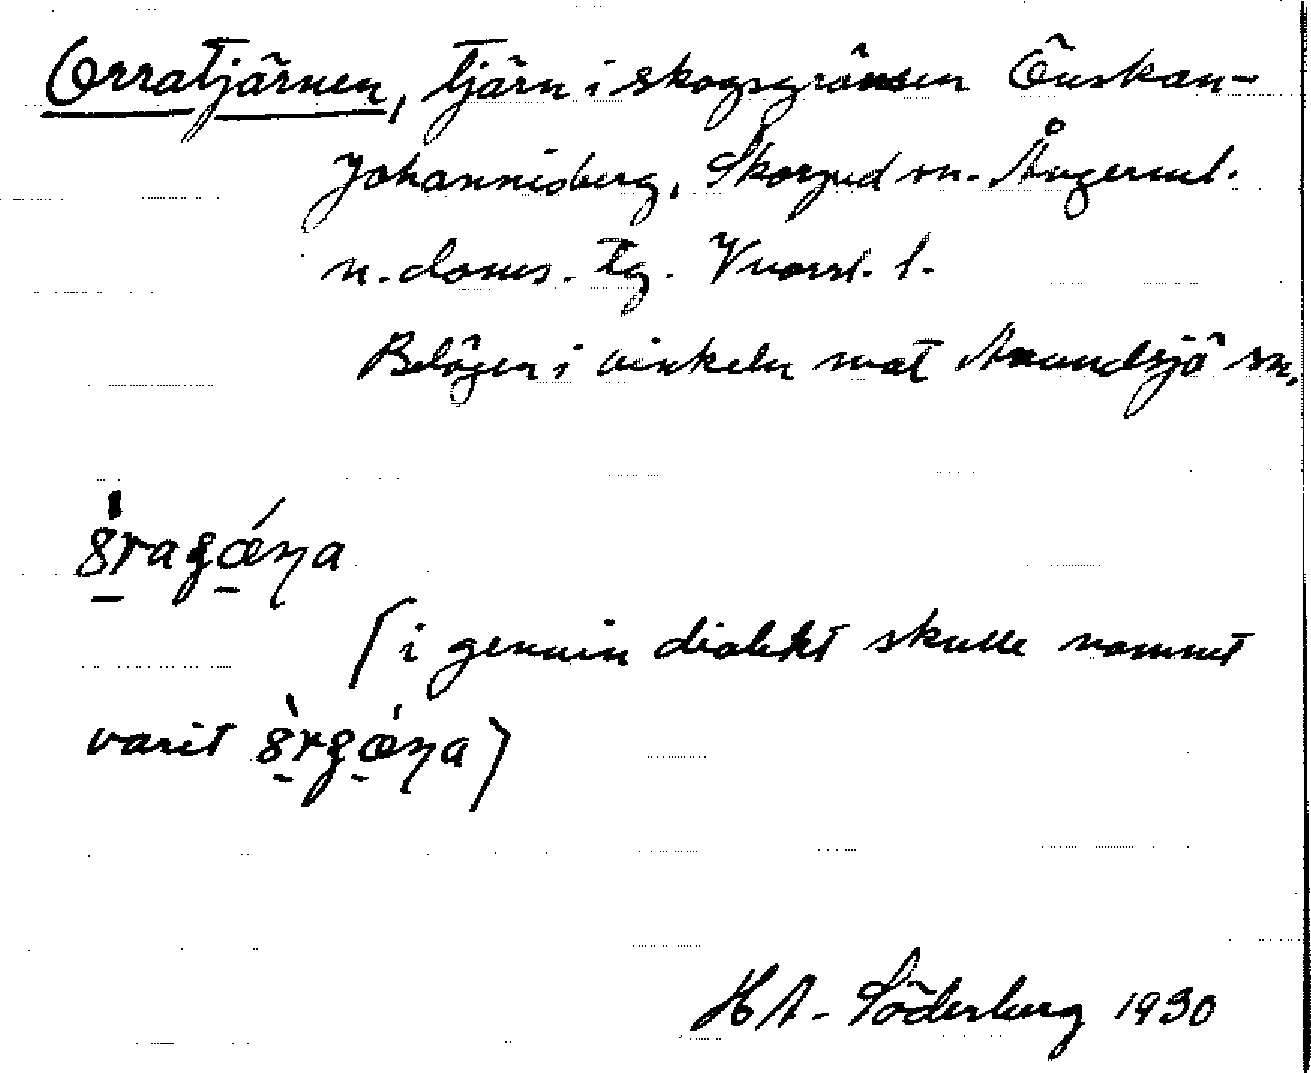 Orratjärnen, tjärn i skogsgränsen Önskan-
Johannisberg, Skorped sn. Ångerml.
n. doms. tg. 1.
Belägen i vinkeln mot Anundsjö sn.
(i genuin dialekt skulle namnet
varit
HA. Söderberg 1930